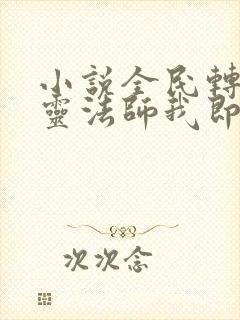 小説全民轉
靈法師我即
次次念